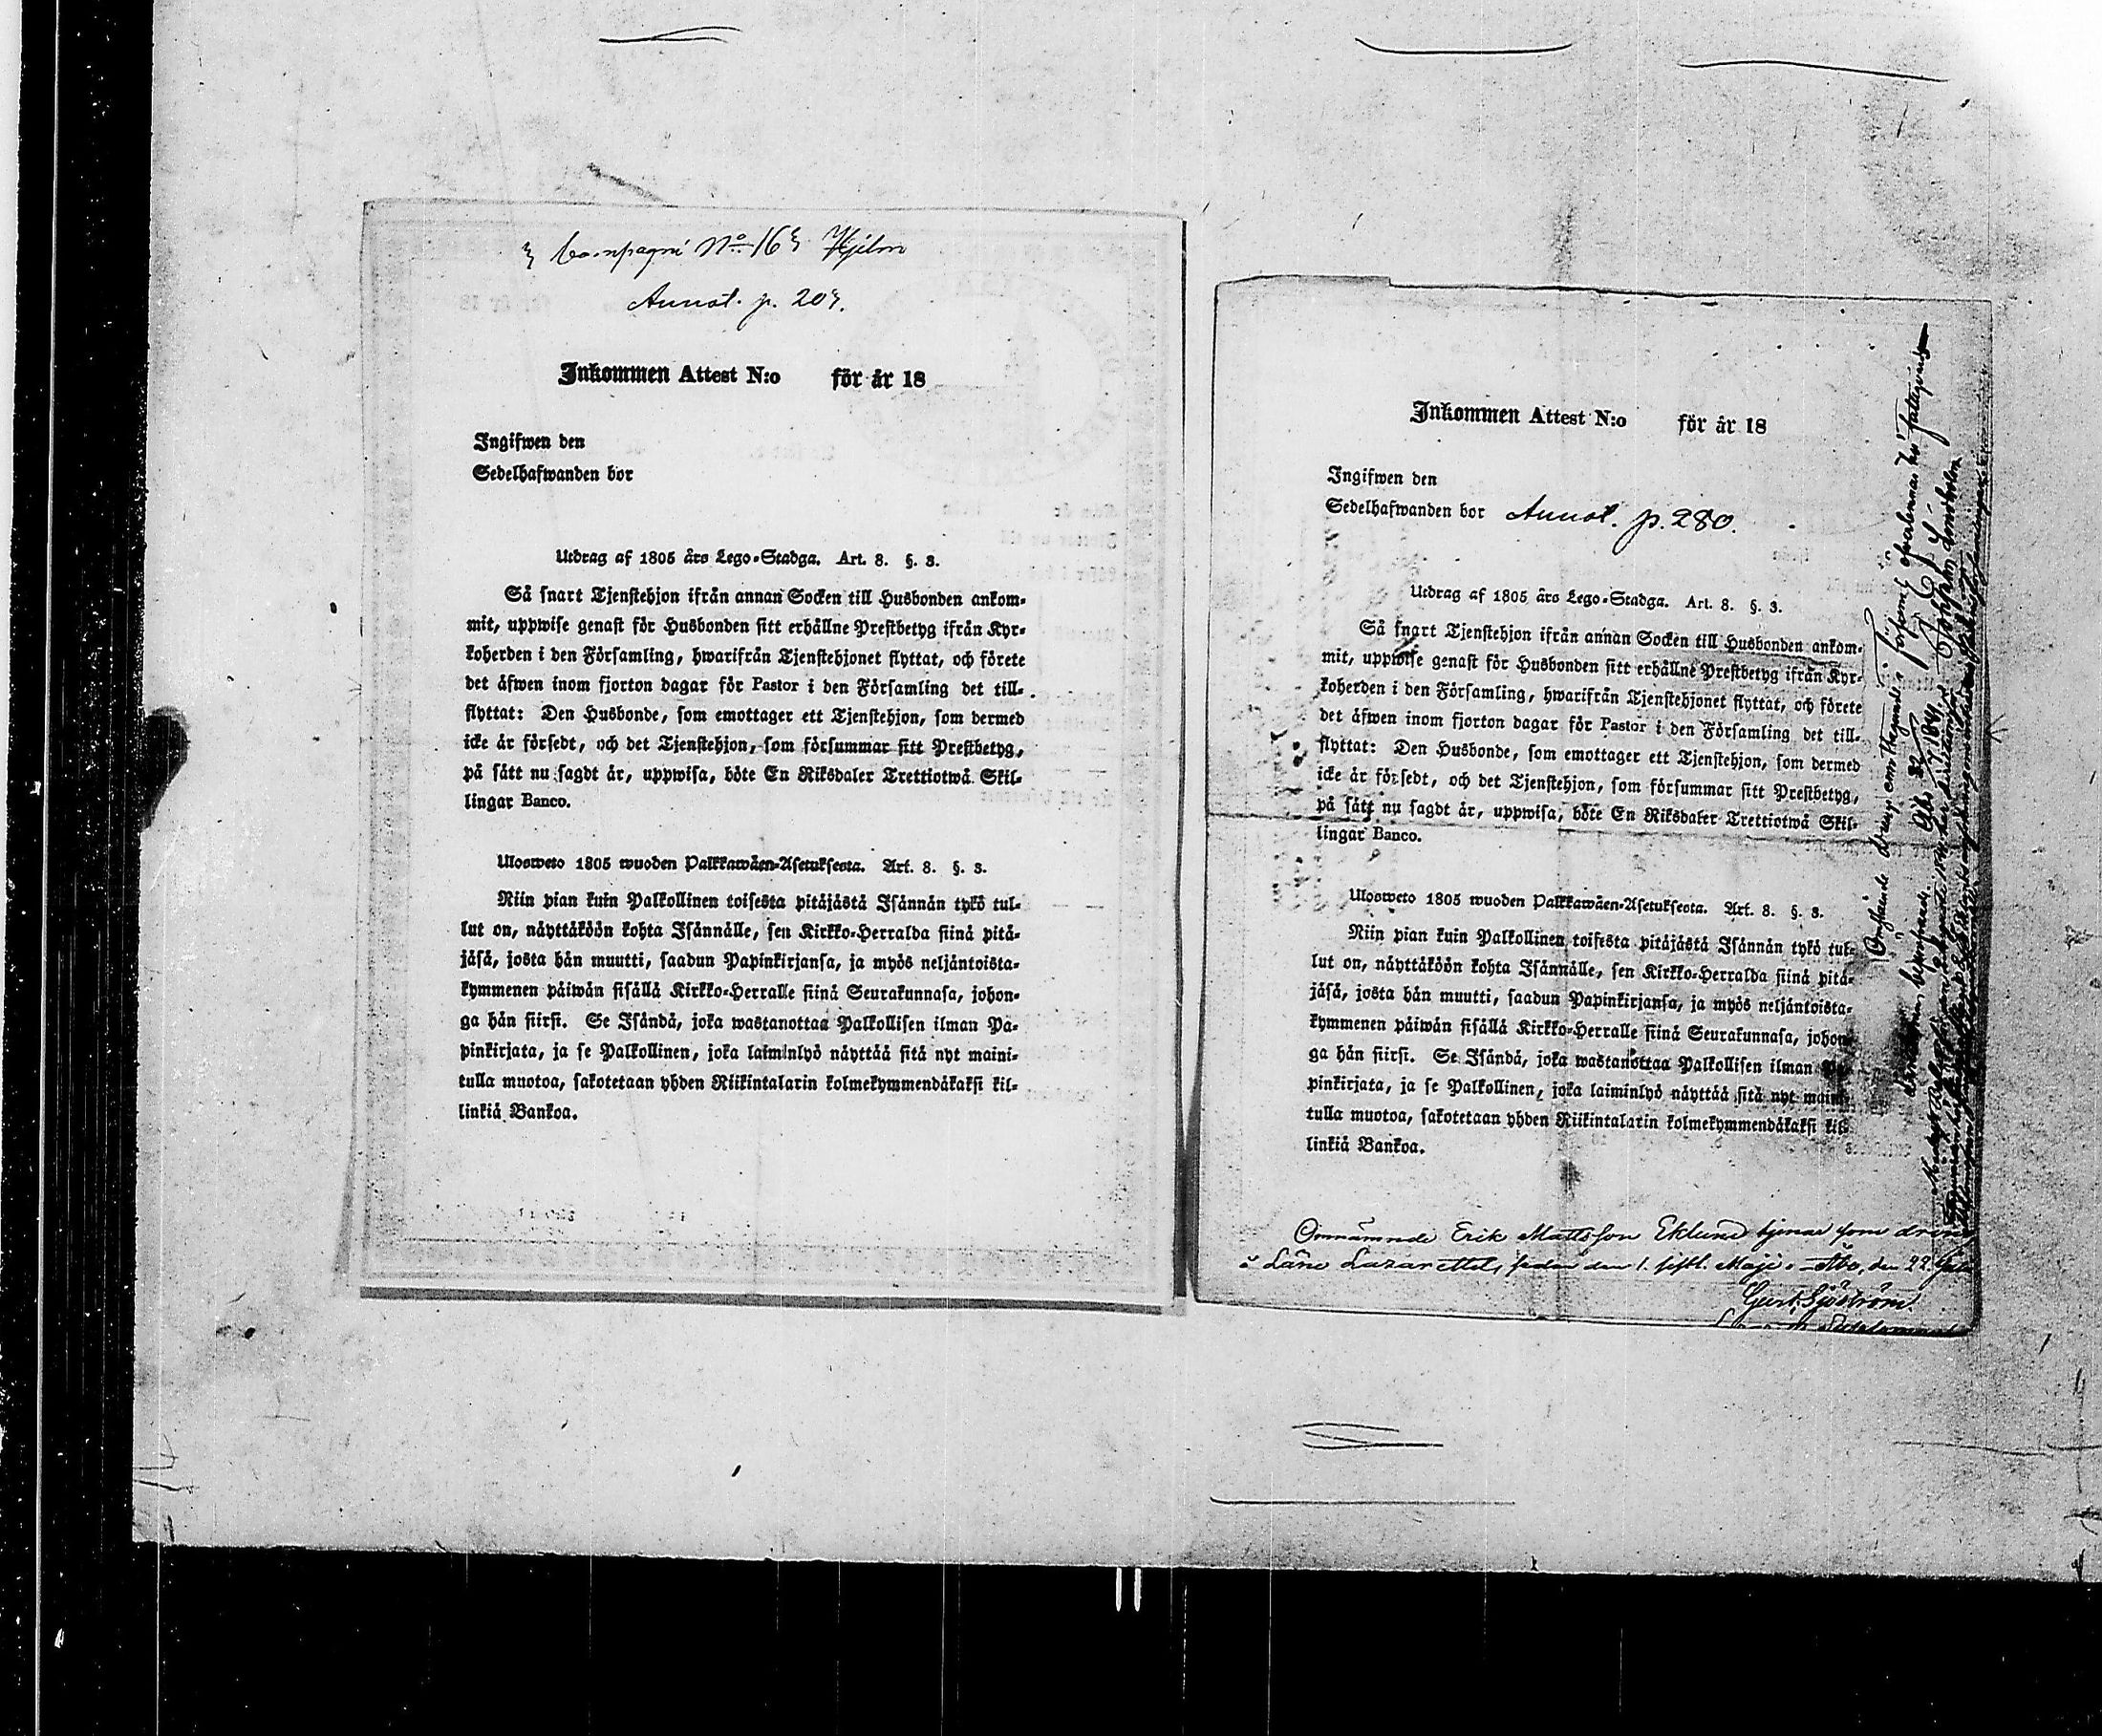 Compagni No 16 Hjelm
Annot. p. 203.
Inkommen Attest N:o för år 18
Ingifwen den
Sedelhafwanden bor
Utdrag af 1805 års Lego-Stadga. Art. 8. §. 3.
Så snart Tjenstehjon ifrån annan Socken till Husbonden ankom-
mit, uppwise genast för Husbonden sitt erhållne Prestbetyg ifrån Kyr-
koherden i den Församling, hwarifrån Tjenstehjonet flyttat, och förete
det äfwen inom fjorton dagar för Pastor i den Församling det till-
flyttat: Den Husbonde, som emottager ett Tjenstehjon, som dermed
icke är försedt, och det Tjenstehjon, som försummar sitt Prestbetyg,
på sätt nu sagdt är, uppwisa, böte En Riksdaler Trettiotwå Skil-
lingar Banco.
Ulosweto 1805 wuoden Palkkawäen-Asetuksesta. Art. 8. §. 3.
Niin pian kuin Palkollinen toisesta pitäjästä Isännän tykö tul-
lut on, näyttäköön kohta Isännälle, sen Kirkko-Herralda siinä pitä-
jäsä, josta hän muutti, saadun Papinkirjansa, ja myös neljäntoista-
kymmenen päiwän sisällä Kirkko-Herralle siinä Seurakunnasa, johon-
ga hän siirsi. Se Isändä, joka wastanottaa Palkollisen ilman Pa-
pinkirjata, ja se Palkollinen, joka laiminlyö näyttää sitä nyt maini-
tulla muotoa, sakotetaan yhden Riikintalarin kolmekymmendäkaksi kil-
linkiä Bankoa.
Inkommen Attest N:o för år 18
Ingifwen den
Sedelhafwanden bor Annot. p. 280.
Utdrag af 1805 års Lego-Stadga. Art. 8. §. 3.
Så snart Tjenstehjon ifrån annan Socken till Husbonden ankom-
mit, uppwise genast för Husbonden sitt erhållne Prestbetyg ifrån Kyr-
koherden i den Församling, hwarifrån Tjenstehjonet flyttat, och förete
det äfwen inom fjorton dagar för Pastor i den Församling det till-
flyttat: Den Husbonde, som emottager ett Tjenstehjon, som dermed
icke är försedt, och det Tjenstehjon, som försummar sitt Prestbetyg,
på sätt nu sagdt är, uppwisa, böte En Riksdaler Trettiotwå Skil-
lingar Banco.
Ulosweto 1805 wuoden Palkkawäen-Asetuksesta. Art. 8. §. 3.
Niin pian kuin Palkollinen toisesta pitäjästä Isännän tykö tul-
lut on, näyttäköön kohta Isännälle, sen Kirkko-Herralda siinä pitä-
jäsä, josta hän muutti, saadun Papinkirjansa, ja myös neljäntoista-
kymmenen päiwän sisällä Kirkko-Herralle siinä Seurakunnasa, johon-
ga hän siirsi. Se Isändä, joka wastanottaa Palkollisen ilman Pa-
pinkirjata, ja se Palkollinen, joka laiminlyö näyttää sitä nyt maini-
tulla muotoa, sakotetaan yhden Riikintalarin kolmekymmendäkaksi kil-
linkiä Bankoa.
Omnämnde Erik Mattsson Eklund tjenar som dräng
å Läns Lazarettet, sedan den 1. sistl. Maji. Åbo, den 22
Gust. Sjöström
Omstående dräng